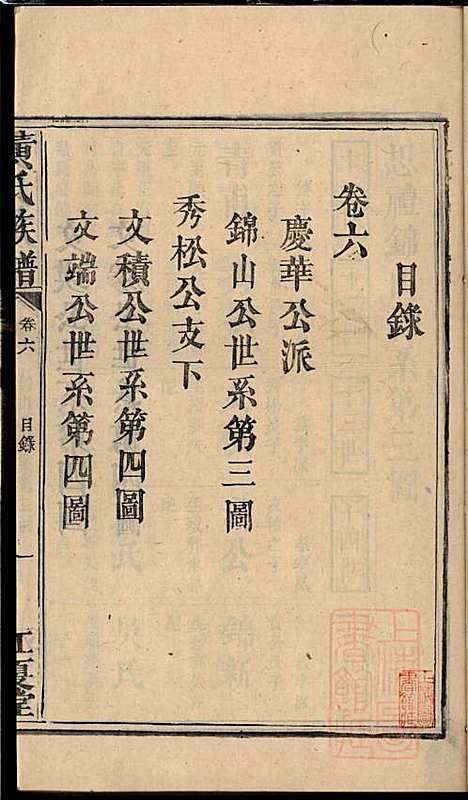 目錄
卷六
慶華公派
錦山公世系第三圖
秀松公支下
文積公世系第四圖
文端公世系第四圖
黃氏族譜
卷六
目錄
一
江夏堂